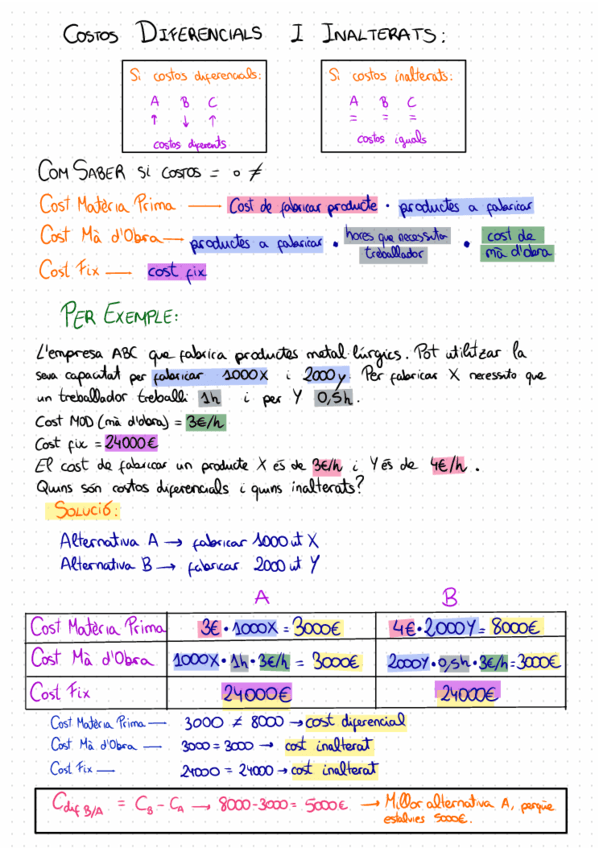 COSTOS DIFERENCIALS I INALTERATS:
Si costos diferencials:
A B C
↑ ↓ ↑
costos diferents
Si costos inalterats:
A B C
= = =
costos iguals
COM SABER SI COSTOS = O ≠
Cost Matèria Prima — Cost de fabricar producte · productes a fabricar
Cost Mà d'Obra — productes a fabricar · hores que necessita treballador · cost de mà d'obra
Cost Fix — cost fix
PER EXEMPLE:
L'empresa ABC que fabrica productes metal·lúrgics. Pot utilitzar la
seva capacitat per fabricar 1000X i 2000y. Per fabricar X necessito que
un treballador treballi 1h i per Y 0,5h.
Cost MOD (mà d'obra) = 3€/h
Cost fix = 24000€
El cost de fabricar un producte X és de 3€/h i Y és de 4€/h.
Quins són costos diferencials i quins inalterats?
SOLUCIÓ:
Alternativa A → fabricar 1000 ut X
Alternativa B → fabricar 2000 ut Y
A B
Cost Matèria Prima 3€ · 1000X = 3000€ 4€ · 2000Y = 8000€
Cost Mà d'Obra 1000X · 1h · 3€/h = 3000€ 2000Y · 0,5h · 3€/h = 3000€
Cost Fix 24000€ 24000€
Cost Matèria Prima — 3000 ≠ 8000 → cost diferencial
Cost Mà d'Obra — 3000 = 3000 → cost inalterat
Cost Fix — 24000 = 24000 → cost inalterat
Cdif B/A = CB - CA → 8000-3000 = 5000€ → Millor alternativa A, perquè
estalvies 5000€.